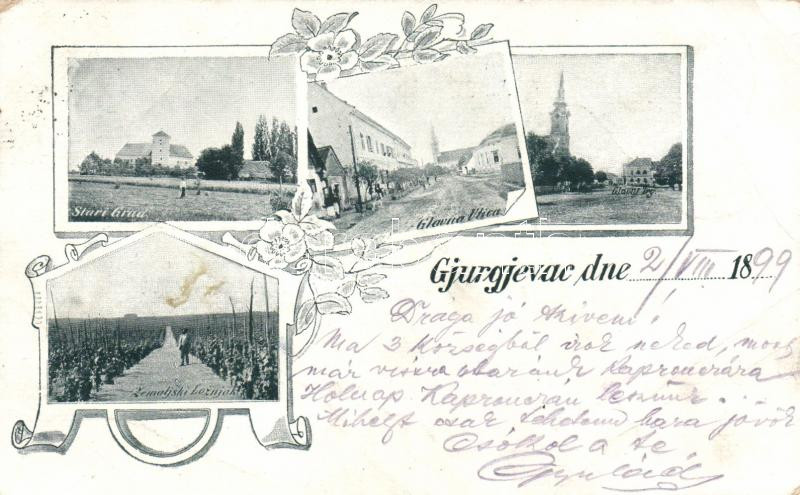 Stari Grad
Glavna Ulica
Glavni Trg
Zemaljski loznjak
Gjurgjevac, dne 2/VIII 1899
Draga jó szivem!
Ma 3 községből irok neked, most
már vissza Kaproncára
Holnap Kaproncán leszünk.
Mihelyt csak haza jövök
Csókol a te
Gyulád